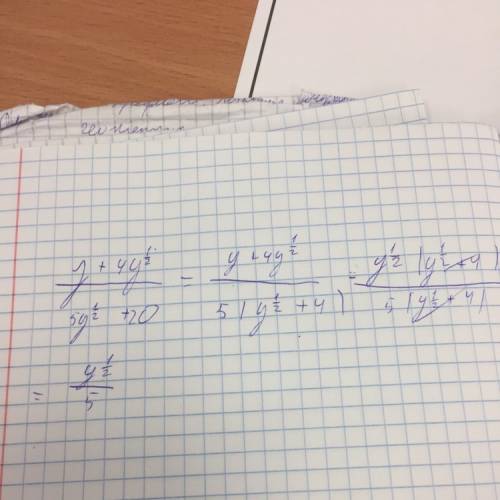 y + 4y^{1/2} / 5y^{1/2} + 20 = y + 4y^{1/2} / 5(y^{1/2} + 4) = y^{1/2}(y^{1/2} + 4) / 5(y^{1/2} + 4)
= y^{1/2} / 5